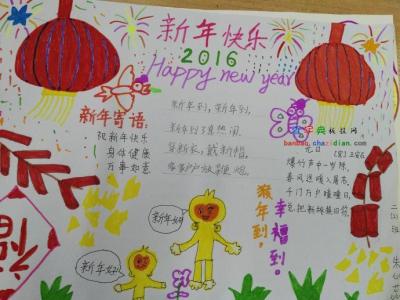 新年快乐
2016
Happy new year
新年寄语:
祝新年快乐
身体健康
万事如意
新年到,新年到,
新年到了真热闹.
穿新衣,戴新帽.
家家户户放鞭炮.
查字典 板报网
banbao.chazidian.com
元日
[宋]王安石
爆竹声中一岁除,
春风送暖入屠苏,
千门万户曈曈日,
总把新桃换旧符.
猴年到。
幸福到。
新年好
新年好
福
二(2)班
朱